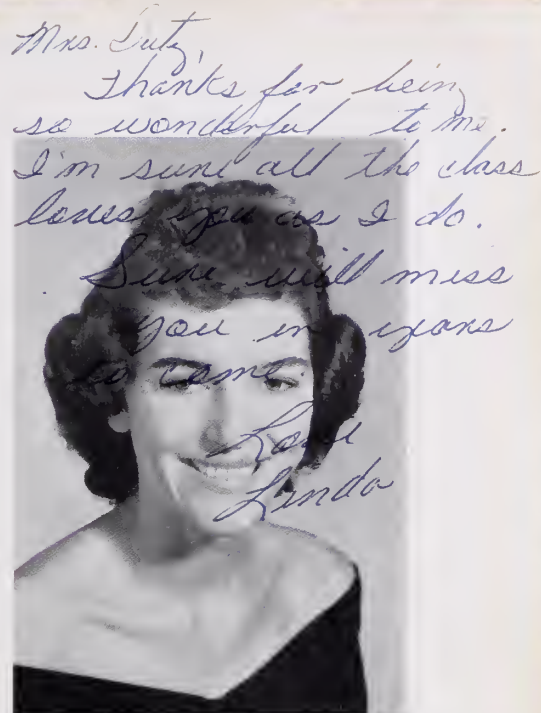 Mrs. Lutz,
Thanks for being
so wonderful to me.
I'm sure all the class
loves you as I do.
Sure will miss
you in years
to come
Love
Linda